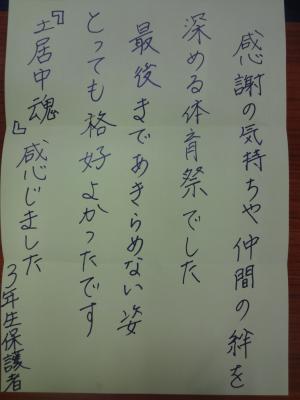 感謝の気持ちや仲間の絆を
深める体育祭でした
最後まであきらめない姿
とっても格好よかったです
『土居中魂』感じました
3年生保護者